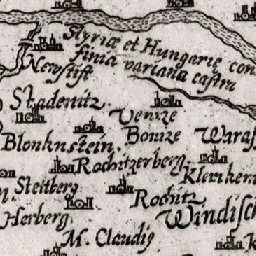 Styriæ et Hungariæ con
finia variana castri
Newstift
Stadenitz
Venize
Bonize
Waraſ
Blonknstein
Rochitzerberg
Kleriken
Steitberg
Rochitz
Herberg
Windiſch
M. Claudiꝰ